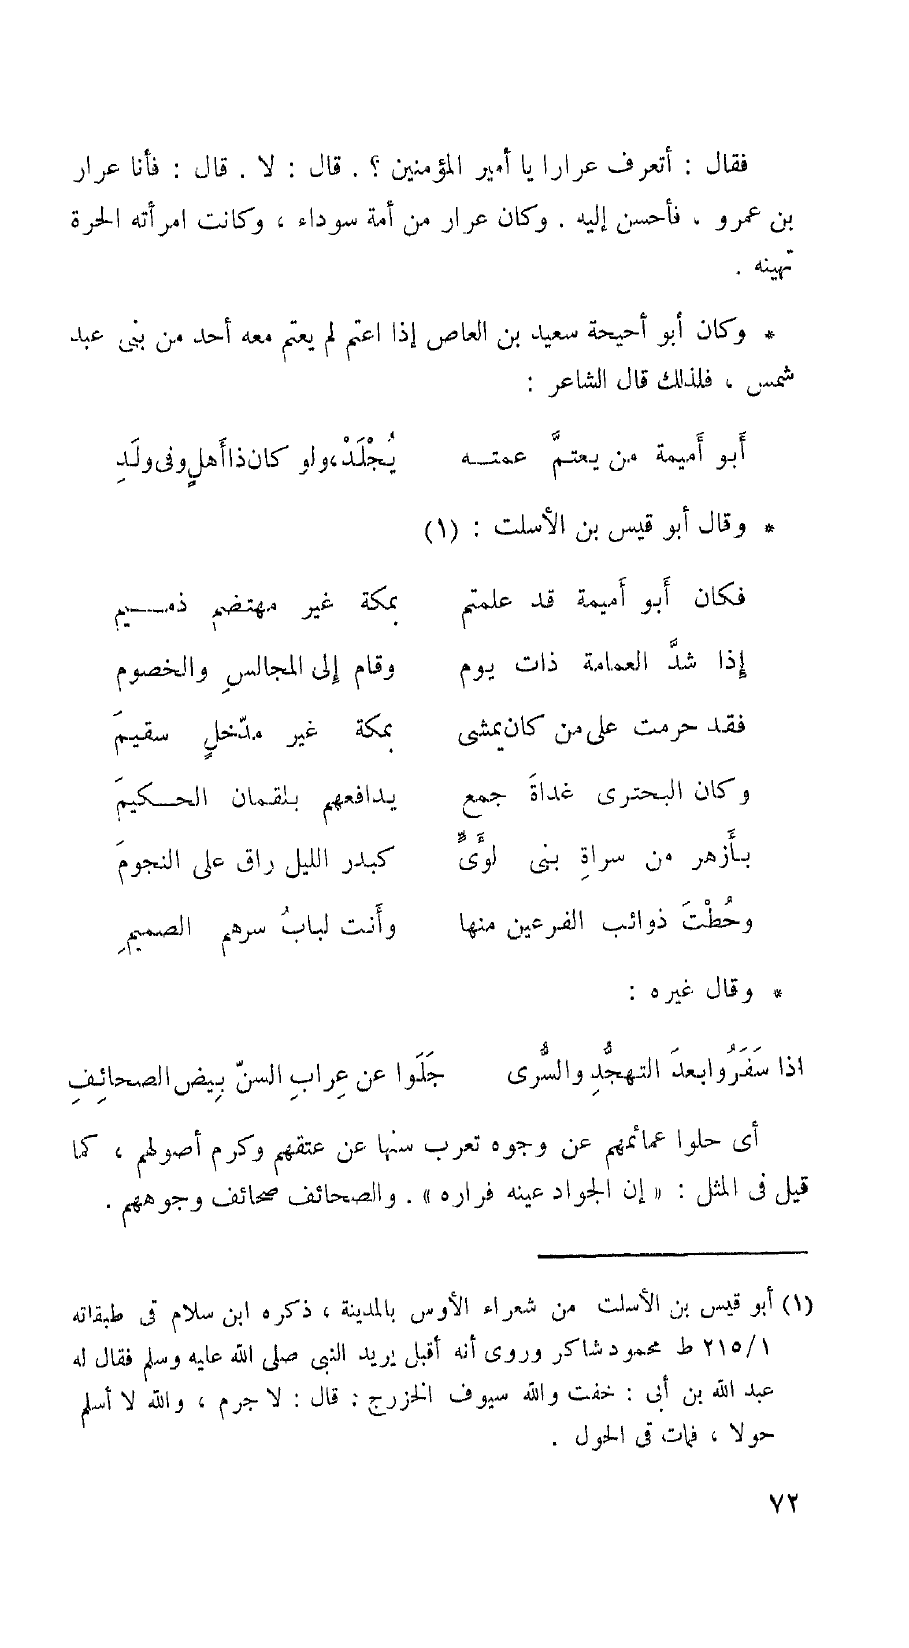 فقال : أتعرف عرارا يا أمير المؤمنين ؟ . قال : لا . قال : فأنا عرار
بن عمرو . فأحسن إليه . وكان عرار من أمة سوداء ، وكانت امرأته الحرة
تهينه .
* وكان أبو أحيحة سعيد بن العاص إذا اعتم لم يعتم معه أحد من بنى عبد
شمس ، فلذلك قال الشاعر :
أَبو أَميمة من يعتمَّ عمتـــه يُجْلَدْ،ولو كان ذا أَهلٍ وفى ولَدِ
* وقال أبو قيس بن الأسلت : (١)
فكان أَبو أَميمة قد علمتم بمكة غير مهتضم ذمـــيم
إِذا شدَّ العمامة ذات يوم وقام إِلى المجالسِ والخصوم
فقد حرمت على من كان يمشى بمكة غير مدّخلٍ سقيمَ
وكان البحترى غداةَ جمع يدافعهم بلقمان الحـــكيمَ
بأَزهر من سراةِ بنى لوَىٍّ كبدر الليل راق على النجومَ
وحُطْتَ ذوائب الفرعين منها وأَنت لبابُ سرهم الصميمِ
* وقال غيره :
اذا سَفَرُوا بعدَ التهجُّدِ والسُّرى جَلَوا عن عِرابِ السنّ بِيض الصحائِفِ
أى حلوا عمائمهم عن وجوه تعرب سنها عن عتقهم وكرم أصولهم ، كما
قيل فى المثل : « إن الجواد عينه فراره » . والصحائف صحائف وجوههم .
(١) أبو قيس بن الأسلت من شعراء الأوس بالمدينة ، ذكره ابن سلام فى طبقاته
٢١٥/١ ط محمود شاكر وروى أنه أقبل يريد النبى صلى الله عليه وسلم فقال له
عبد الله بن أبى : خفت والله سيوف الخزرج : قال : لا جرم ، والله لا أسلم
حولا ، فمات فى الحول .
٧٢